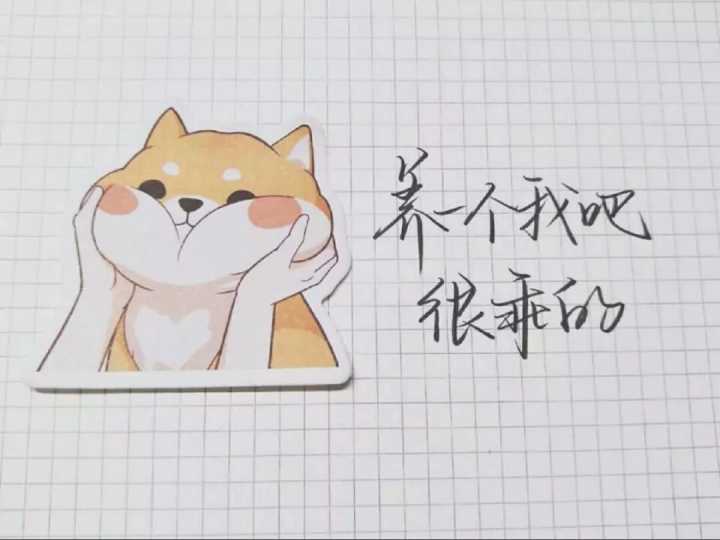 养一个我吧
很乖的